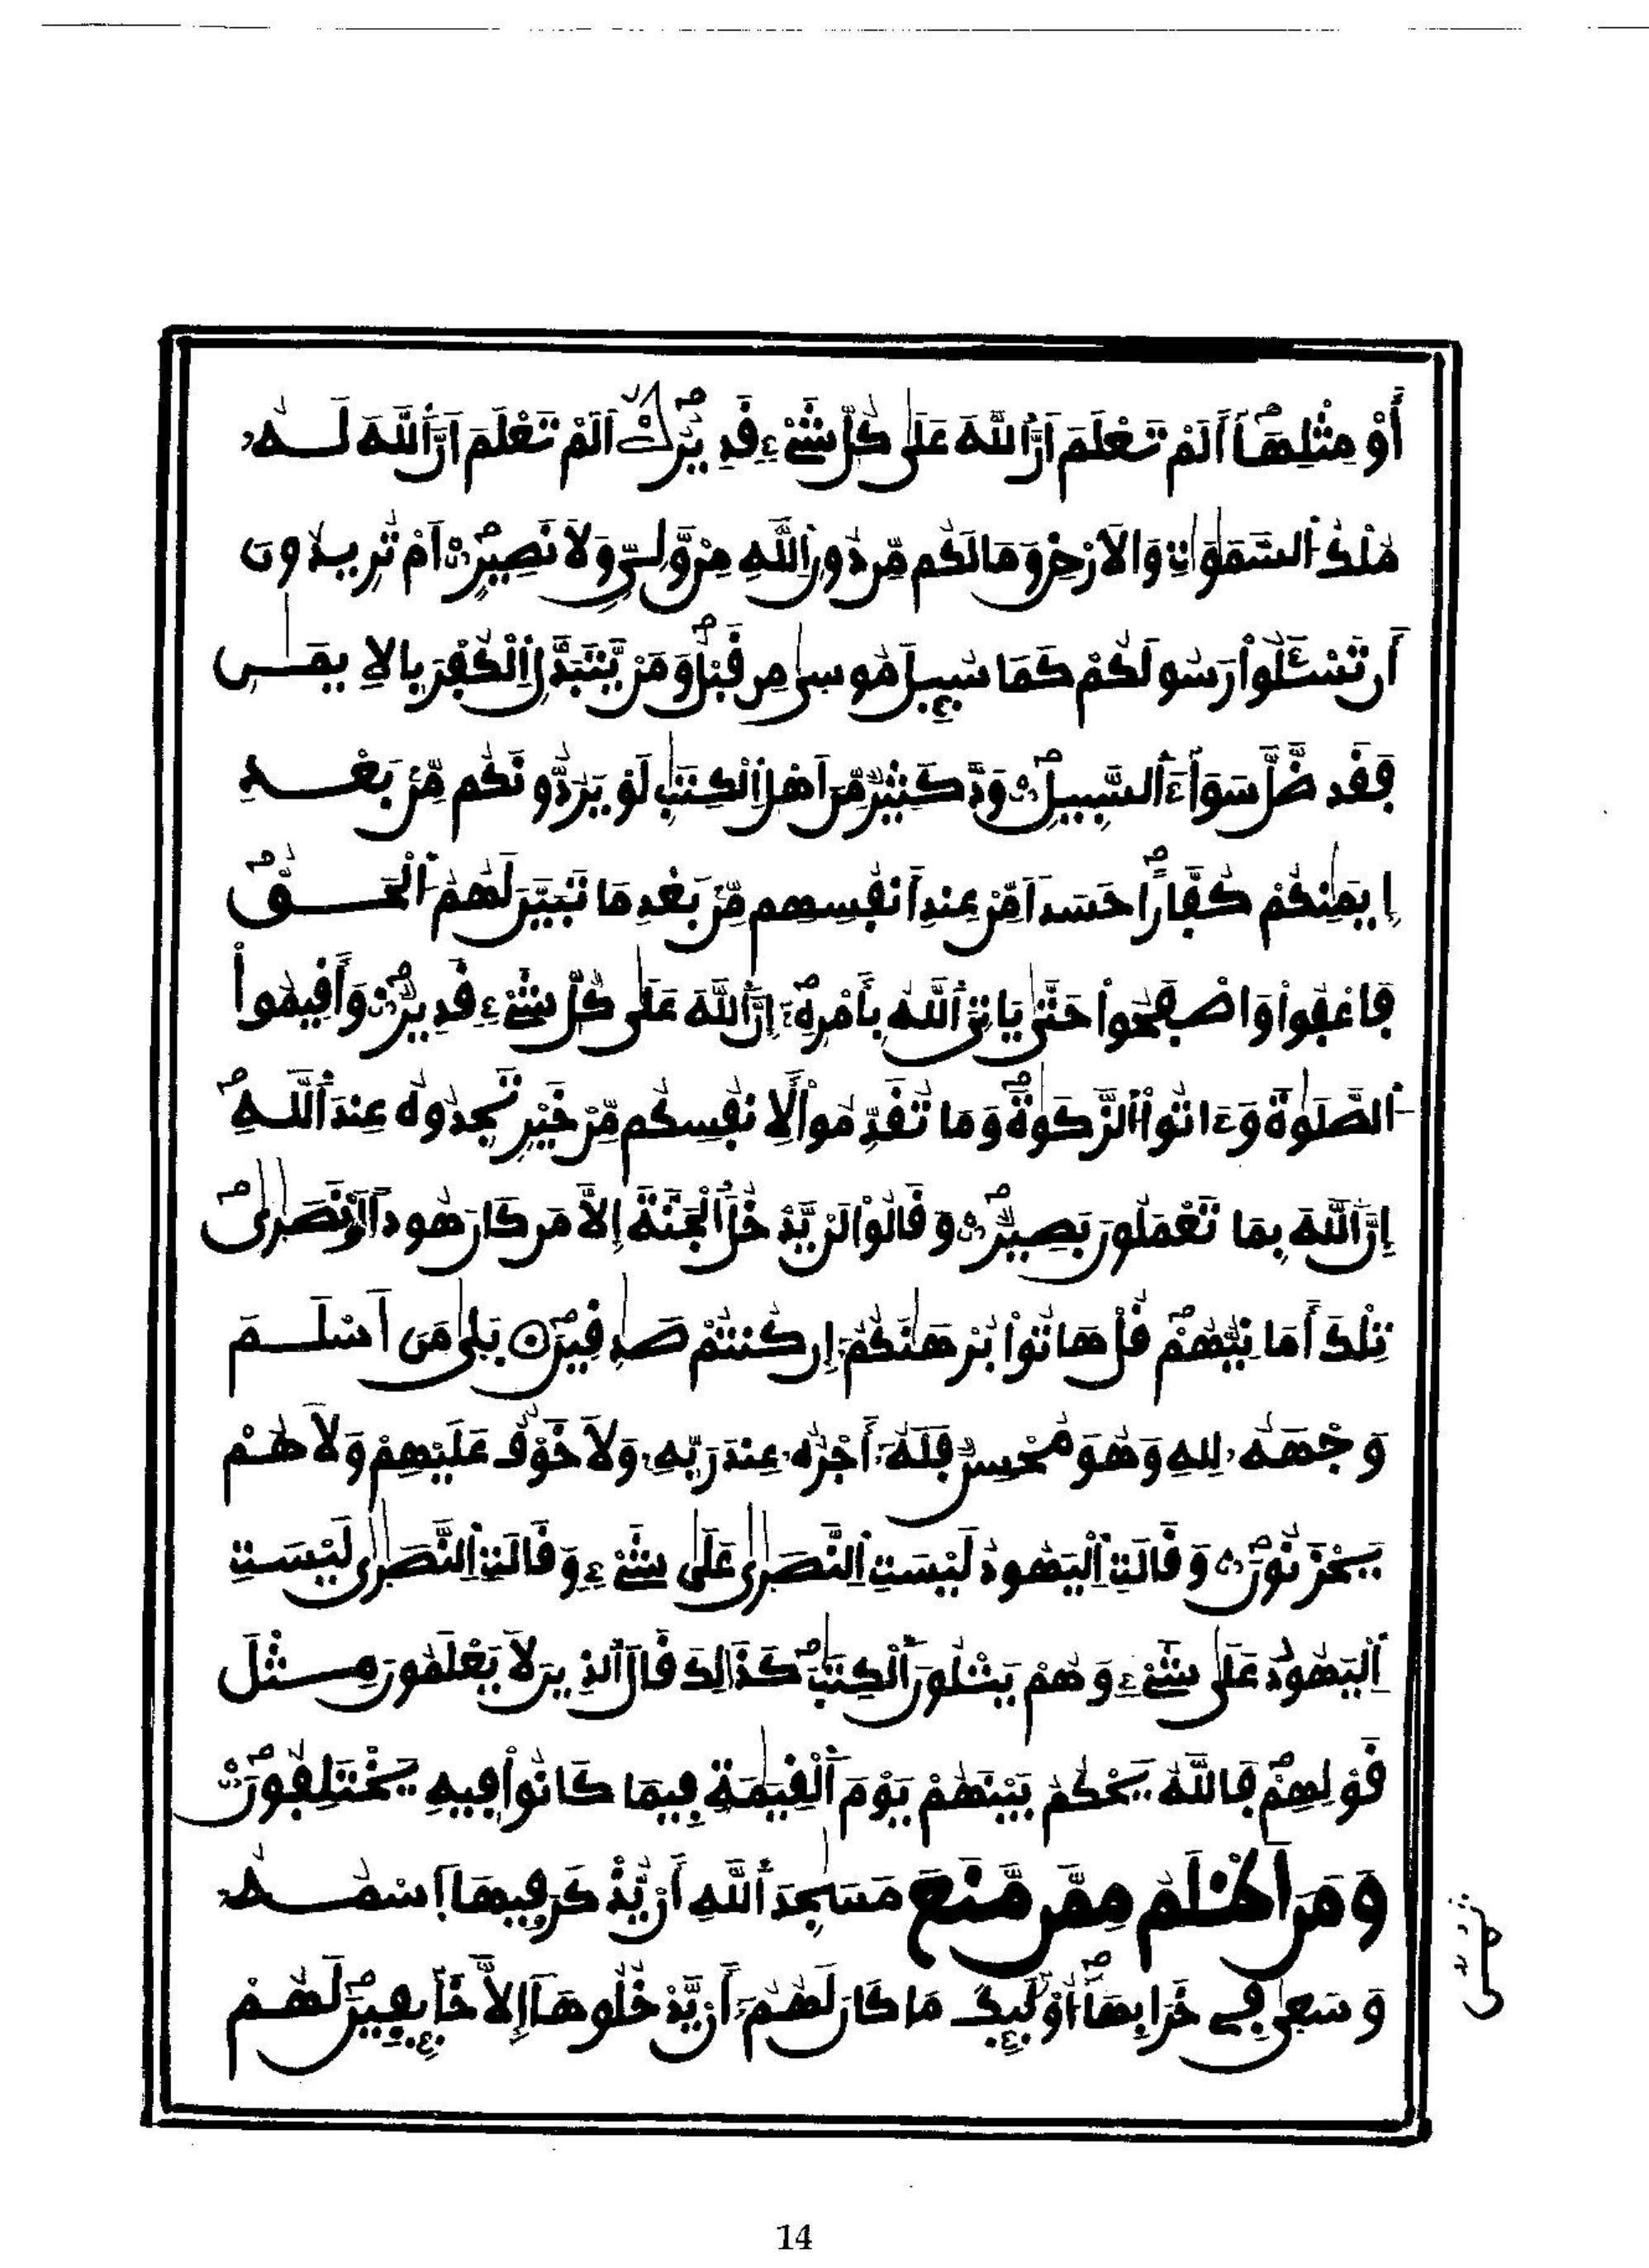 أَوْ مِثْلِهَآ أَلَمْ تَعْلَمَ اَنَّ اَللَّهَ عَلَىٰ كُلِّ شَےْءٖ قَدِيرٌ اَلَمْ تَعْلَمَ اَنَّ اَللَّهَ لَهُۥ
مُلْكُ اُ۬لسَّمَٰوَٰتِ وَالَارْضِ وَمَا لَكُم مِّن دُونِ اِ۬للَّهِ مِنْ وَّلِيّٖ وَلَا نَصِيرٍ اَمْ تُرِيدُونَ
أَن تَسْـَٔلُواْ رَسُولَكُمْ كَمَا سُئِلَ مُوسَىٰ مِن قَبْلُ وَمَنْ يَّتَبَدَّلِ اِ۬لْكُفْرَ بِالِايمَٰنِ
فَقَد ضَّلَّ سَوَآءَ اَ۬لسَّبِيلِ وَدَّ كَثِيرٌ مِّنَ اَهْلِ اِ۬لْكِتَٰبِ لَوْ يَرُدُّونَكُم مِّنۢ بَعْدِ
إِيمَٰنِكُمْ كُفَّاراً حَسَداً مِّنْ عِندِ أَنفُسِهِم مِّنۢ بَعْدِ مَا تَبَيَّنَ لَهُمُ اُ۬لْحَقُّ
فَاعْفُواْ وَاصْفَحُواْ حَتَّىٰ يَاتِيَ اَ۬للَّهُ بِأَمْرِهِۦٓ إِنَّ اَ۬للَّهَ عَلَىٰ كُلِّ شَےْءٖ قَدِيرٌ وَأَقِيمُواْ
اُ۬لصَّلَوٰةَ وَءَاتُواْ اُ۬لزَّكَوٰةَ وَمَا تُقَدِّمُواْ لِأَنفُسِكُم مِّنْ خَيْرٖ تَجِدُوهُ عِندَ اَ۬للَّهِ
إِنَّ اَ۬للَّهَ بِمَا تَعْمَلُونَ بَصِيرٌ وَقَالُواْ لَنْ يَّدْخُلَ اَ۬لْجَنَّةَ إِلَّا مَن كَانَ هُوداً اَوْ نَصَٰرَىٰ
تِلْكَ أَمَانِيُّهُمْ قُلْ هَاتُواْ بُرْهَٰنَكُمُۥٓ إِن كُنتُمْ صَٰدِقِينَ بَلَىٰ مَنَ اَسْلَمَ
وَجْهَهُۥ لِلهِ وَهُوَ مُحْسِنٌ فَلَهُۥٓ أَجْرُهُۥ عِندَ رَبِّهِۦ وَلَا خَوْفٌ عَلَيْهِمْ وَلَا هُمْ
يَحْزَنُونَ وَقَالَتِ اِ۬لْيَهُودُ لَيْسَتِ اِ۬لنَّصَٰرَىٰ عَلَىٰ شَےْءٖ وَقَالَتِ اِ۬لنَّصَٰرَىٰ لَيْسَتِ
اِ۬لْيَهُودُ عَلَىٰ شَےْءٖ وَهُمْ يَتْلُونَ اَ۬لْكِتَٰبَ كَذَٰلِكَ قَالَ اَ۬لذِينَ لَا يَعْلَمُونَ مِثْلَ
قَوْلِهِمْ فَاللَّهُ يَحْكُمُ بَيْنَهُمْ يَوْمَ اَ۬لْقِيَٰمَةِ فِيمَا كَانُواْ فِيهِ يَخْتَلِفُونَ
وَمَنَ اَظْلَمُ مِمَّن مَّنَعَ مَسَٰجِدَ اَ۬للَّهِ أَنْ يُّذْكَرَ فِيهَا اَ۪سْمُهُۥ
وَسَعَىٰ فِے خَرَابِهَآ أُوْلَٰٓئِكَ مَا كَانَ لَهُمُۥٓ أَنْ يَّدْخُلُوهَآ إِلَّا خَآئِفِينَ لَهُمْ
14